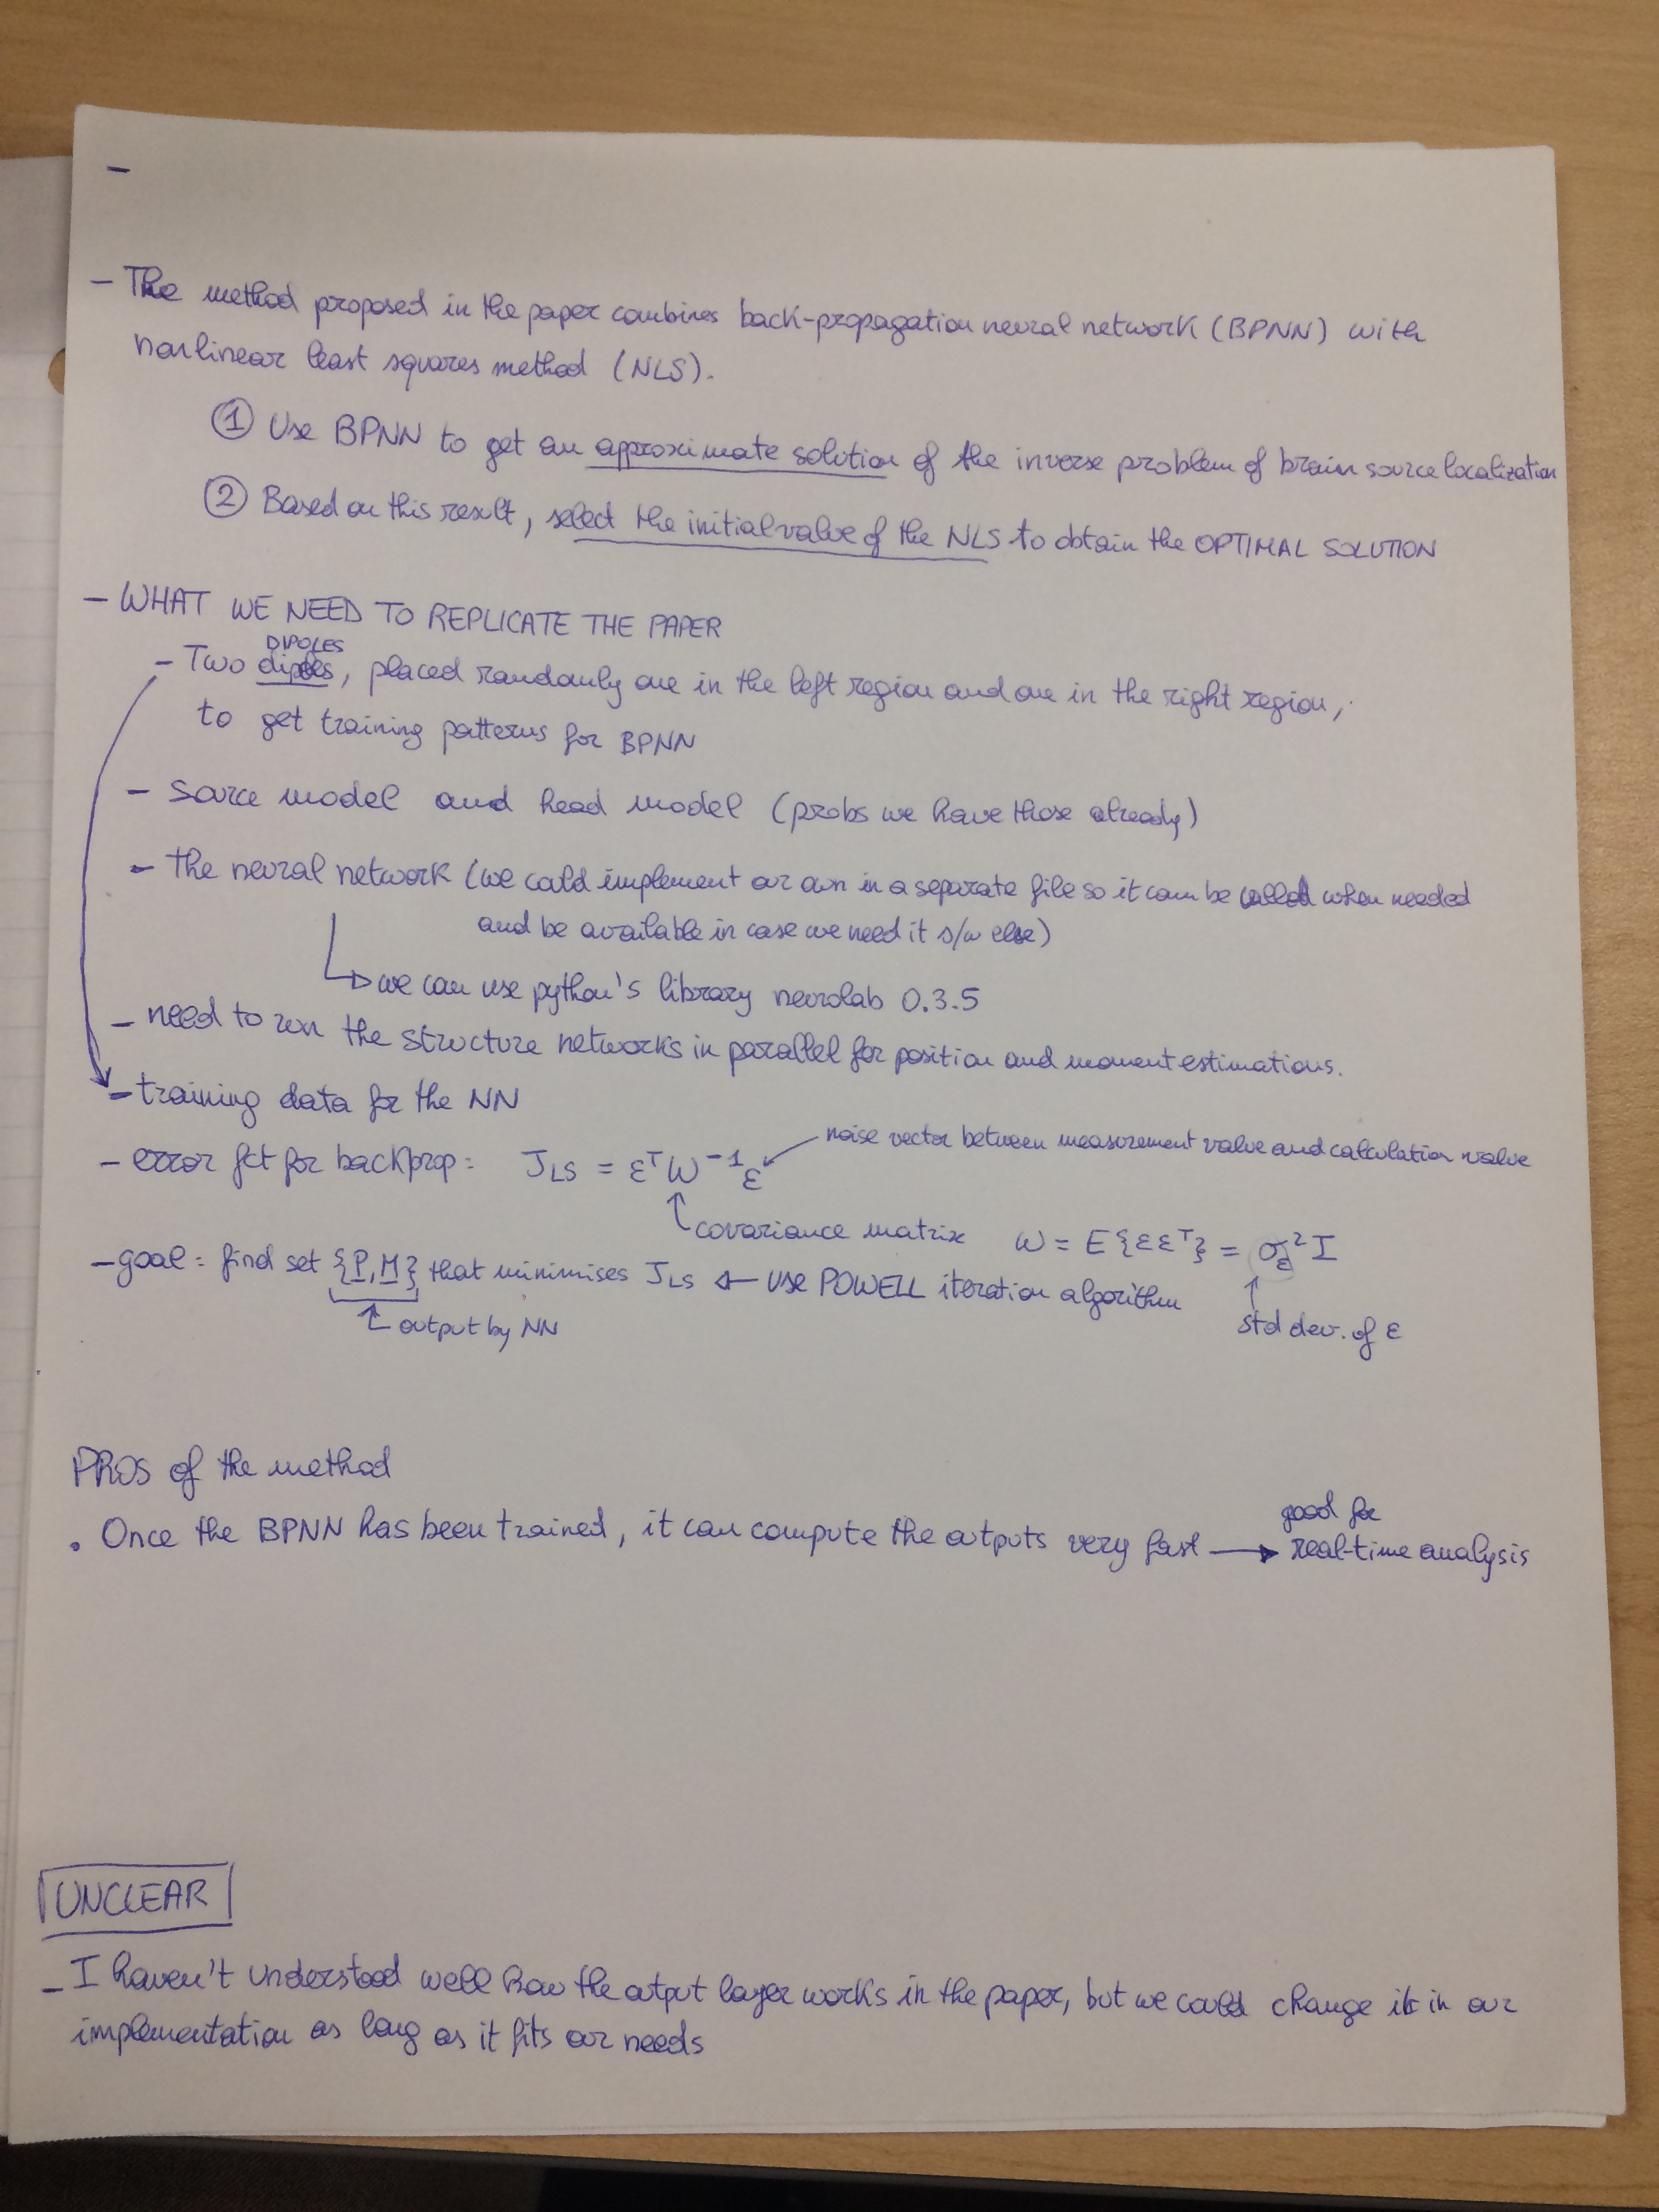 –
– The method proposed in the paper combines back-propagation neural network (BPNN) with
nonlinear least squares method (NLS).
① Use BPNN to get an approximate solution of the inverse problem of brain source localization
② Based on this result, select the initial value of the NLS to obtain the OPTIMAL SOLUTION
– WHAT WE NEED TO REPLICATE THE PAPER
DIPOLES
– Two dipoles, placed randomly one in the left region and one in the right region,
to get training patterns for BPNN
– source model and head model (probs we have those already)
– the neural network (we could implement our own in a separate file so it can be called when needed
and be available in case we need it s/w else)
↳ we can use python's library neurolab 0.3.5
– need to run the structure networks in parallel for position and moment estimations.
– training data for the NN
– error fct for backprop: J_LS = εᵀW⁻¹ε ← noise vector between measurement value and calculation value
↑ covariance matrix W = E{εεᵀ} = σ_ε²I
– goal: find set {P, M} that minimises J_LS ← use POWELL iteration algorithm
↑ output by NN
↑ std dev. of ε
PROS of the method
good for
• Once the BPNN has been trained, it can compute the outputs very fast → real-time analysis
UNCLEAR
– I haven't understood well how the output layer works in the paper, but we could change it in our
implementation as long as it fits our needs